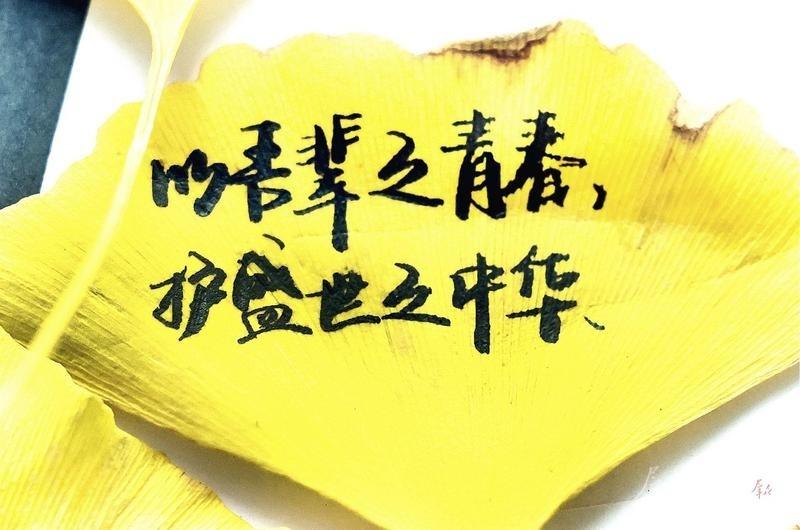 以吾辈之青春，
护盛世之中华、